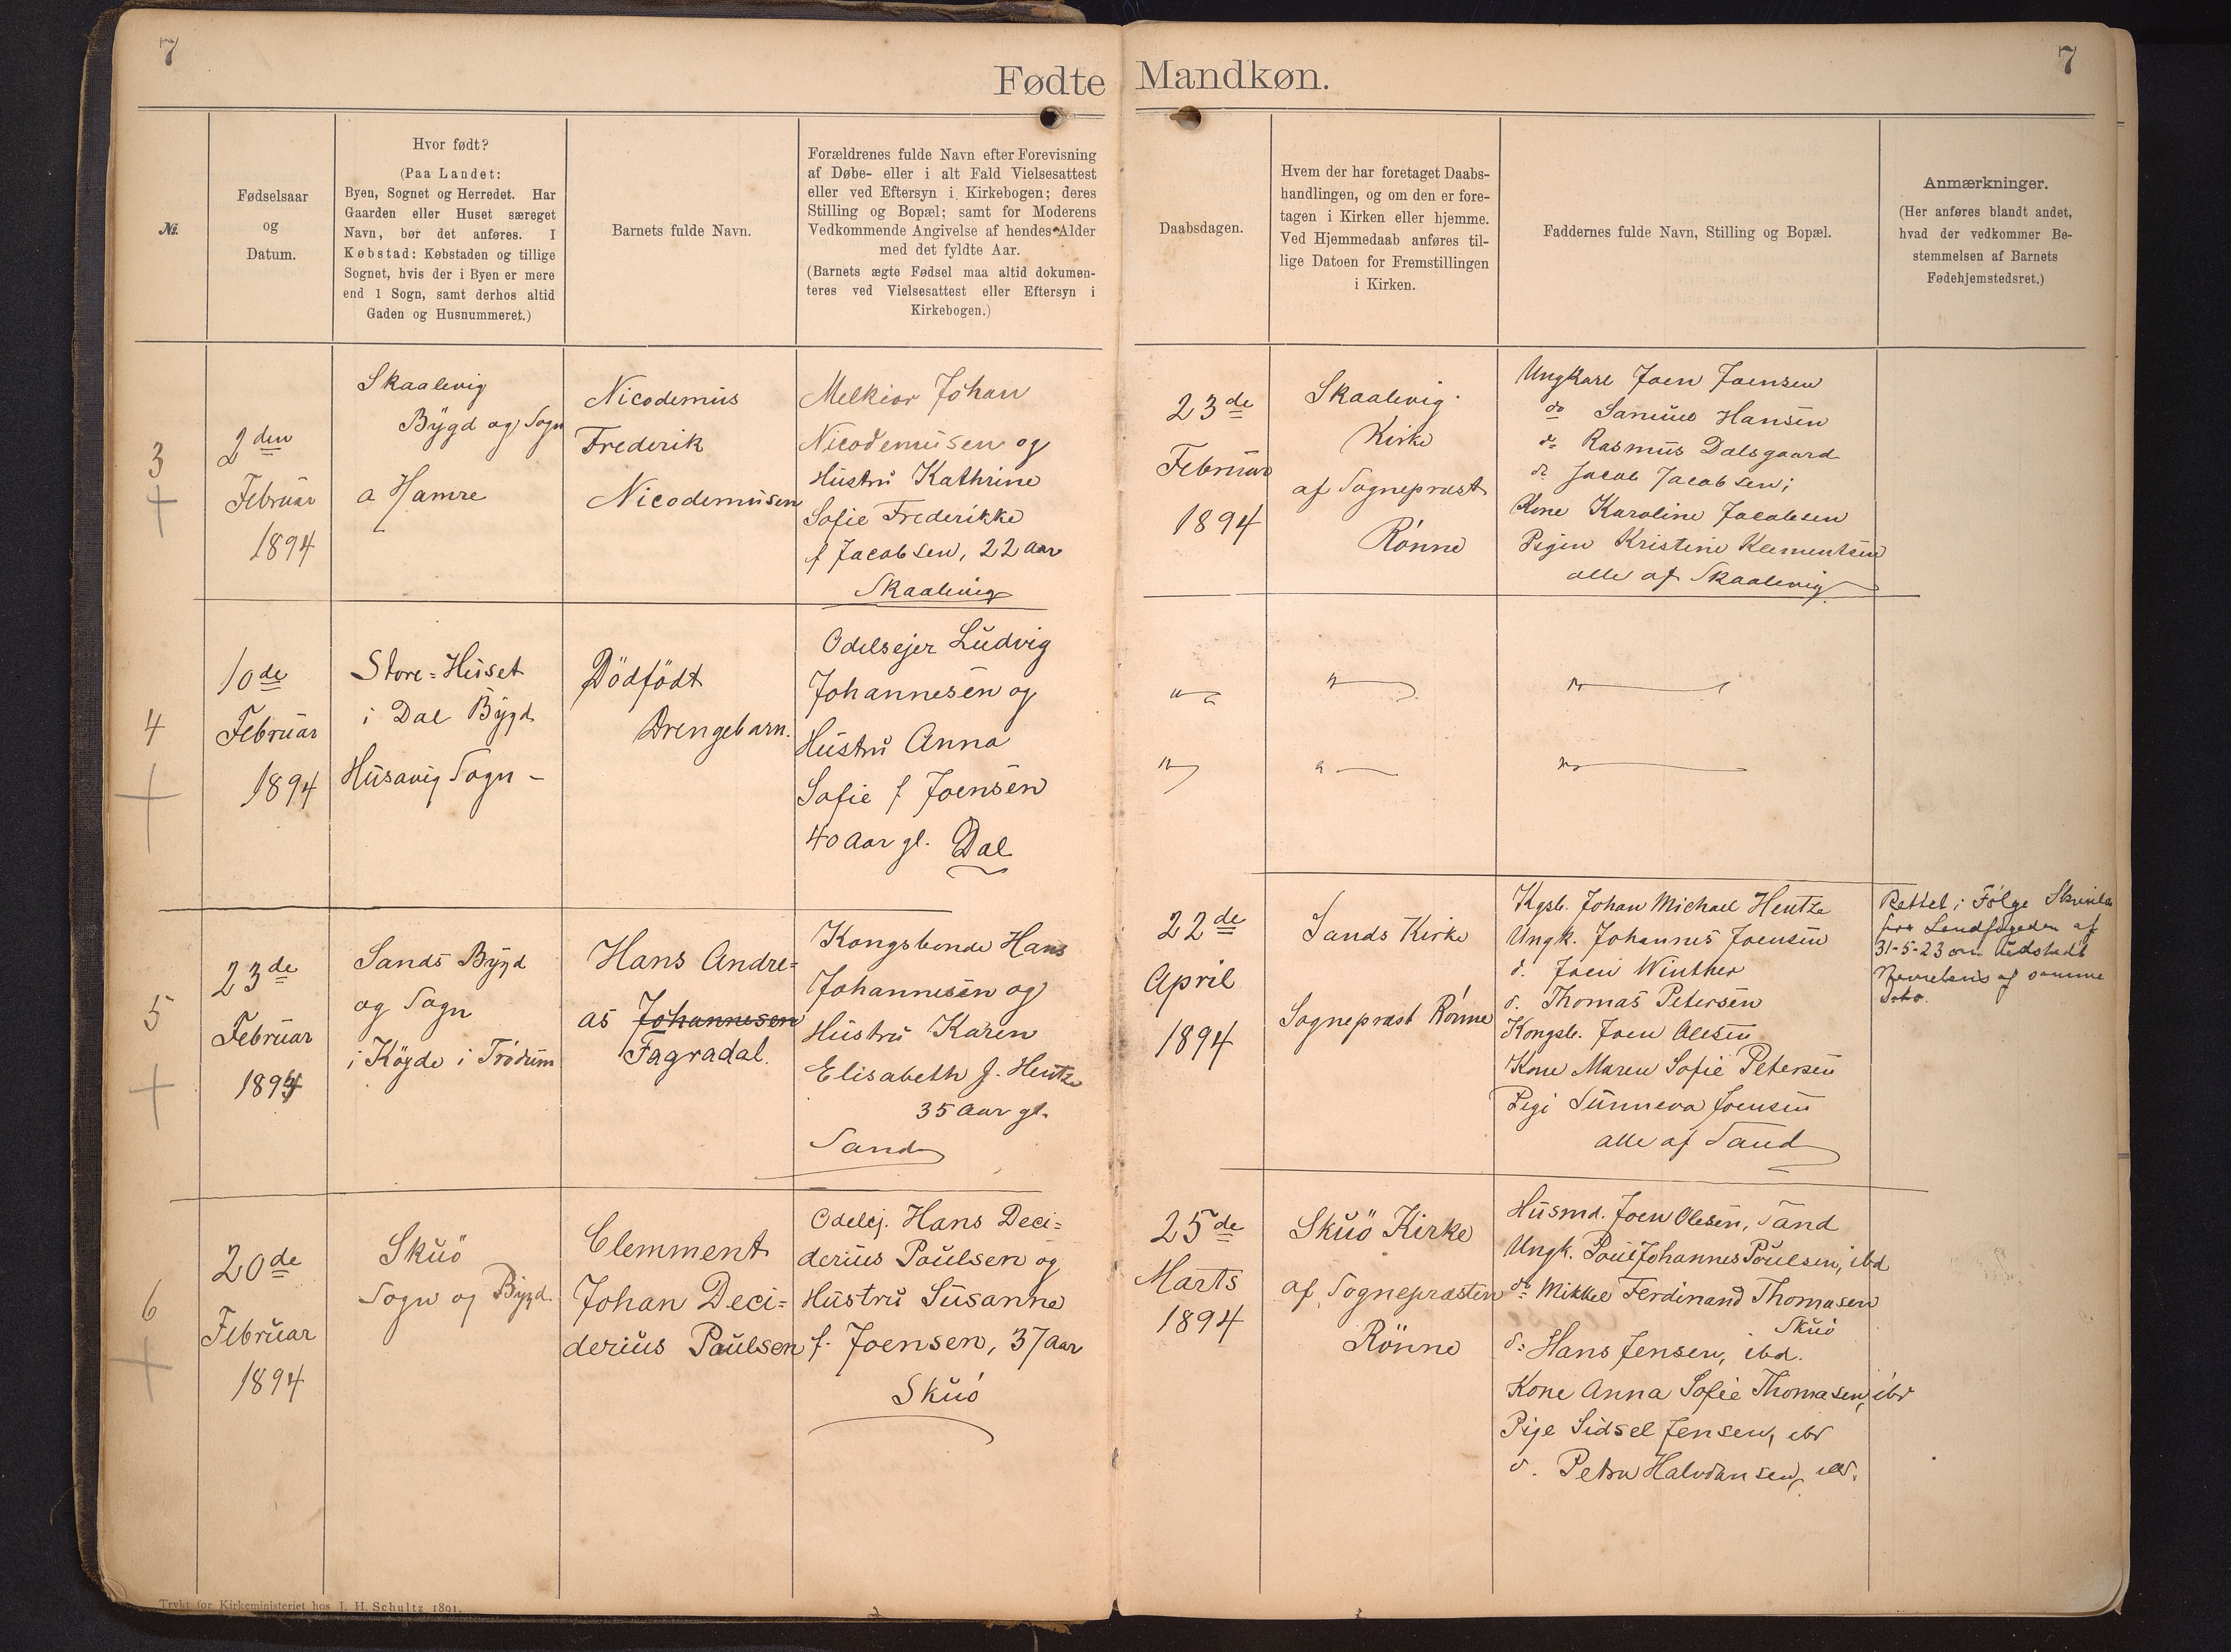 7
7
Fødte Mandkøn.
№.
Fødselsaar
og
Datum.
Hvor født?
(Paa Landet:
Byen, Sognet og Herredet. Har
Gaarden eller Huset særeget
Navn, bør det anføres. I
Købstad: Købstaden og tillige
Sognet, hvis der i Byen er mere
end 1 Sogn, samt derhos altid
Gaden og Husnummeret.)
Barnets fulde Navn.
Forældrenes fulde Navn efter Forevisning
af Døbe- eller i alt Fald Vielsesattest
eller ved Eftersyn i Kirkebogen; deres
Stilling og Bopæl; samt for Moderens
Vedkommende Angivelse af hendes Alder
med det fyldte Aar.
(Barnets ægte Fødsel maa altid dokumen-
teres ved Vielsesattest eller Eftersyn i
Kirkebogen.)
Daabsdagen.
Hvem der har foretaget Daabs-
handlingen, og om den er fore-
tagen i Kirken eller hjemme.
Ved Hjemmedaab anføres til-
lige Datoen for Fremstillingen
i Kirken.
Faddernes fulde Navn, Stilling og Bopæl.
Anmærkninger.
(Her anføres blandt andet,
hvad der vedkommer Be-
stemmelsen af Barnets
Fødehjemstedsret.)
3
2den
Februar
1894
Skaalevig
Bygd og Sogn
a Hamre
Nicodemus
Frederik
Nicodemusen
Melkior Johan
Nicodemusen og
Hustru Kathrine
Sofie Frederikke
f Jacobsen, 22 Aar
Skaalevig
23de
Februar
1894
Skaalevig
Kirke
af Sognepræst
Rönne
Ungkarl Joen Joensen
do Samuel Hansen
do Rasmus Dalsgaard
do Jacob Jacobsen;
Kone Karoline Jacobsen
Pigen Kristine Klementsen
alle af Skaalevig
4
10de
Februar
1894
Store-Huset
i Dal Bygd
Husavig Sogn -
Dödfödt
Drengebarn.
Odelsejer Ludvig
Johannesen og
Hustru Anna
Sofie f Joensen
40 Aar gl. Dal
5
23de
Februar
1894
Sands Bygd
og Sogn
i Köyde i Tródum
Hans Andre=
as Johannesen
Fagradal.
Kongsbonde Hans
Johannesen og
Hustru Karen
Elisabeth f. Hentze
35 Aar gl.
Sand
22de
April
1894
Sands Kirke
Sognepræst Rönne
Kgsb. Johan Michael Hentze
Ungk. Johannes Joensen
d. Joen Winther
d. Thomas Petersen
Kongsb. Joen Olesen
Kone Maren Sofie Petersen
Pigi Sunneva Joensen
alle af Sand
Rettet i Fölge Skrivelse
fra Landfogeden af
31-5-23 om Udstedt
Navnebevis af samme
Dato.
6
20de
Februar
1894
Skuö
Sogn og Bygd.
Clemment
Johan Deci=
derius Paulsen
Odelej. Hans Deci=
derius Poulsen og
Hustru Susanne
f. Joensen, 37 Aar
Skuö
25de
Marts
1894
Skuö Kirke
af Sognepræsten
Rönne
Husmd. Joen Olesen, Sand
Ungk. Poul Johannes Poulsen, ibd
do Mikkel Ferdinand Thomasen
Skuö
d: Hans Jensen, ibd.
Kone Anna Sofie Thomasen, ibd
Pige Sidsel Jensen, ibd
d. Petra Halvdansen, ibd.
Trykt for Kirkeministeriet hos J. H. Schultz 1891.